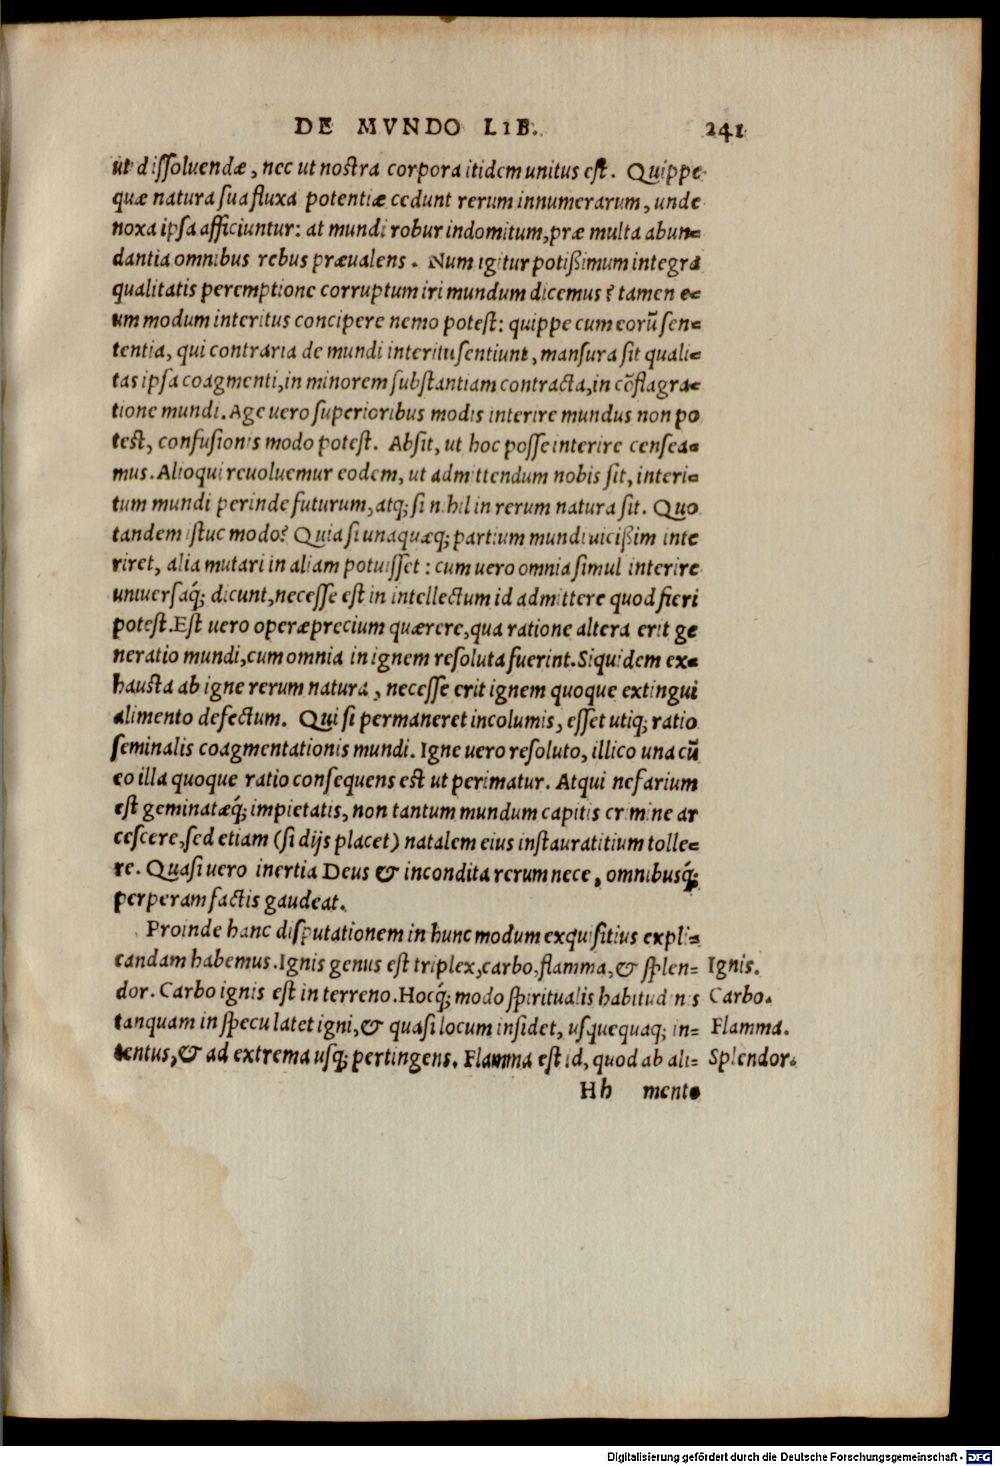 DE MVNDO LIB. 241
ut dissoluendæ, nec ut nostra corpora itidem unitus est. Quippe
quæ natura sua fluxa potentiæ cedunt rerum innumerarum, unde
noxa ipsa afficiuntur: at mundi robur indomitum, præ multa abun=
dantia omnibus rebus præualens. Num igitur potißimum integra
qualitatis peremptione corruptum iri mundum dicemus? tamen e=
um modum interitus concipere nemo potest: quippe cum eorũ sen=
tentia, qui contraria de mundi interitu sentiunt, mansura sit quali=
tas ipsa coagmenti, in minorem substantiam contracta, in cõflagra=
tione mundi. Age uero superioribus modis interire mundus non po
test, confusionis modo potest. Absit, ut hoc posse interire censea=
mus. Alioqui reuoluemur eodem, ut admittendum nobis sit, interi=
tum mundi perinde futurum, atq; si nihil in rerum natura sit. Quo
tandem istuc modo? Quia si unaquæq; partium mundi uicißim inte
riret, alia mutari in aliam potuisset: cum uero omnia simul interire
uniuersaq́; dicunt, necesse est in intellectum id admittere quod fieri
potest. Est uero operæprecium quærere, qua ratione altera erit ge
neratio mundi, cum omnia in ignem resoluta fuerint. Siquidem ex=
hausta ab igne rerum natura, necesse erit ignem quoque extingui
alimento defectum. Qui si permaneret incolumis, esset utiq; ratio
seminalis coagmentationis mundi. Igne uero resoluto, illico una cũ
eo illa quoque ratio consequens est ut perimatur. Atqui nefarium
est geminatæq́; impietatis, non tantum mundum capitis crimine ar
cescere, sed etiam (si dijs placet) natalem eius instauratitium tolle=
re. Quasi uero inertia Deus & incondita rerum nece, omnibusq́;
perperam factis gaudeat.
Proinde hanc disputationem in hunc modum exquisitius expli=
candam habemus. Ignis genus est triplex, carbo, flamma, & splen= Ignis.
dor. Carbo ignis est in terreno. Hocq́; modo spiritualis habitudinis Carbo.
tanquam in specu latet igni, & quasi locum insidet, usquequaq; in= Flamma.
tentus, & ad extrema usq; pertingens. Flamma est id, quod ab ali= Splendor.
Hh mento
Digitalisierung gefördert durch die Deutsche Forschungsgemeinschaft - DFG